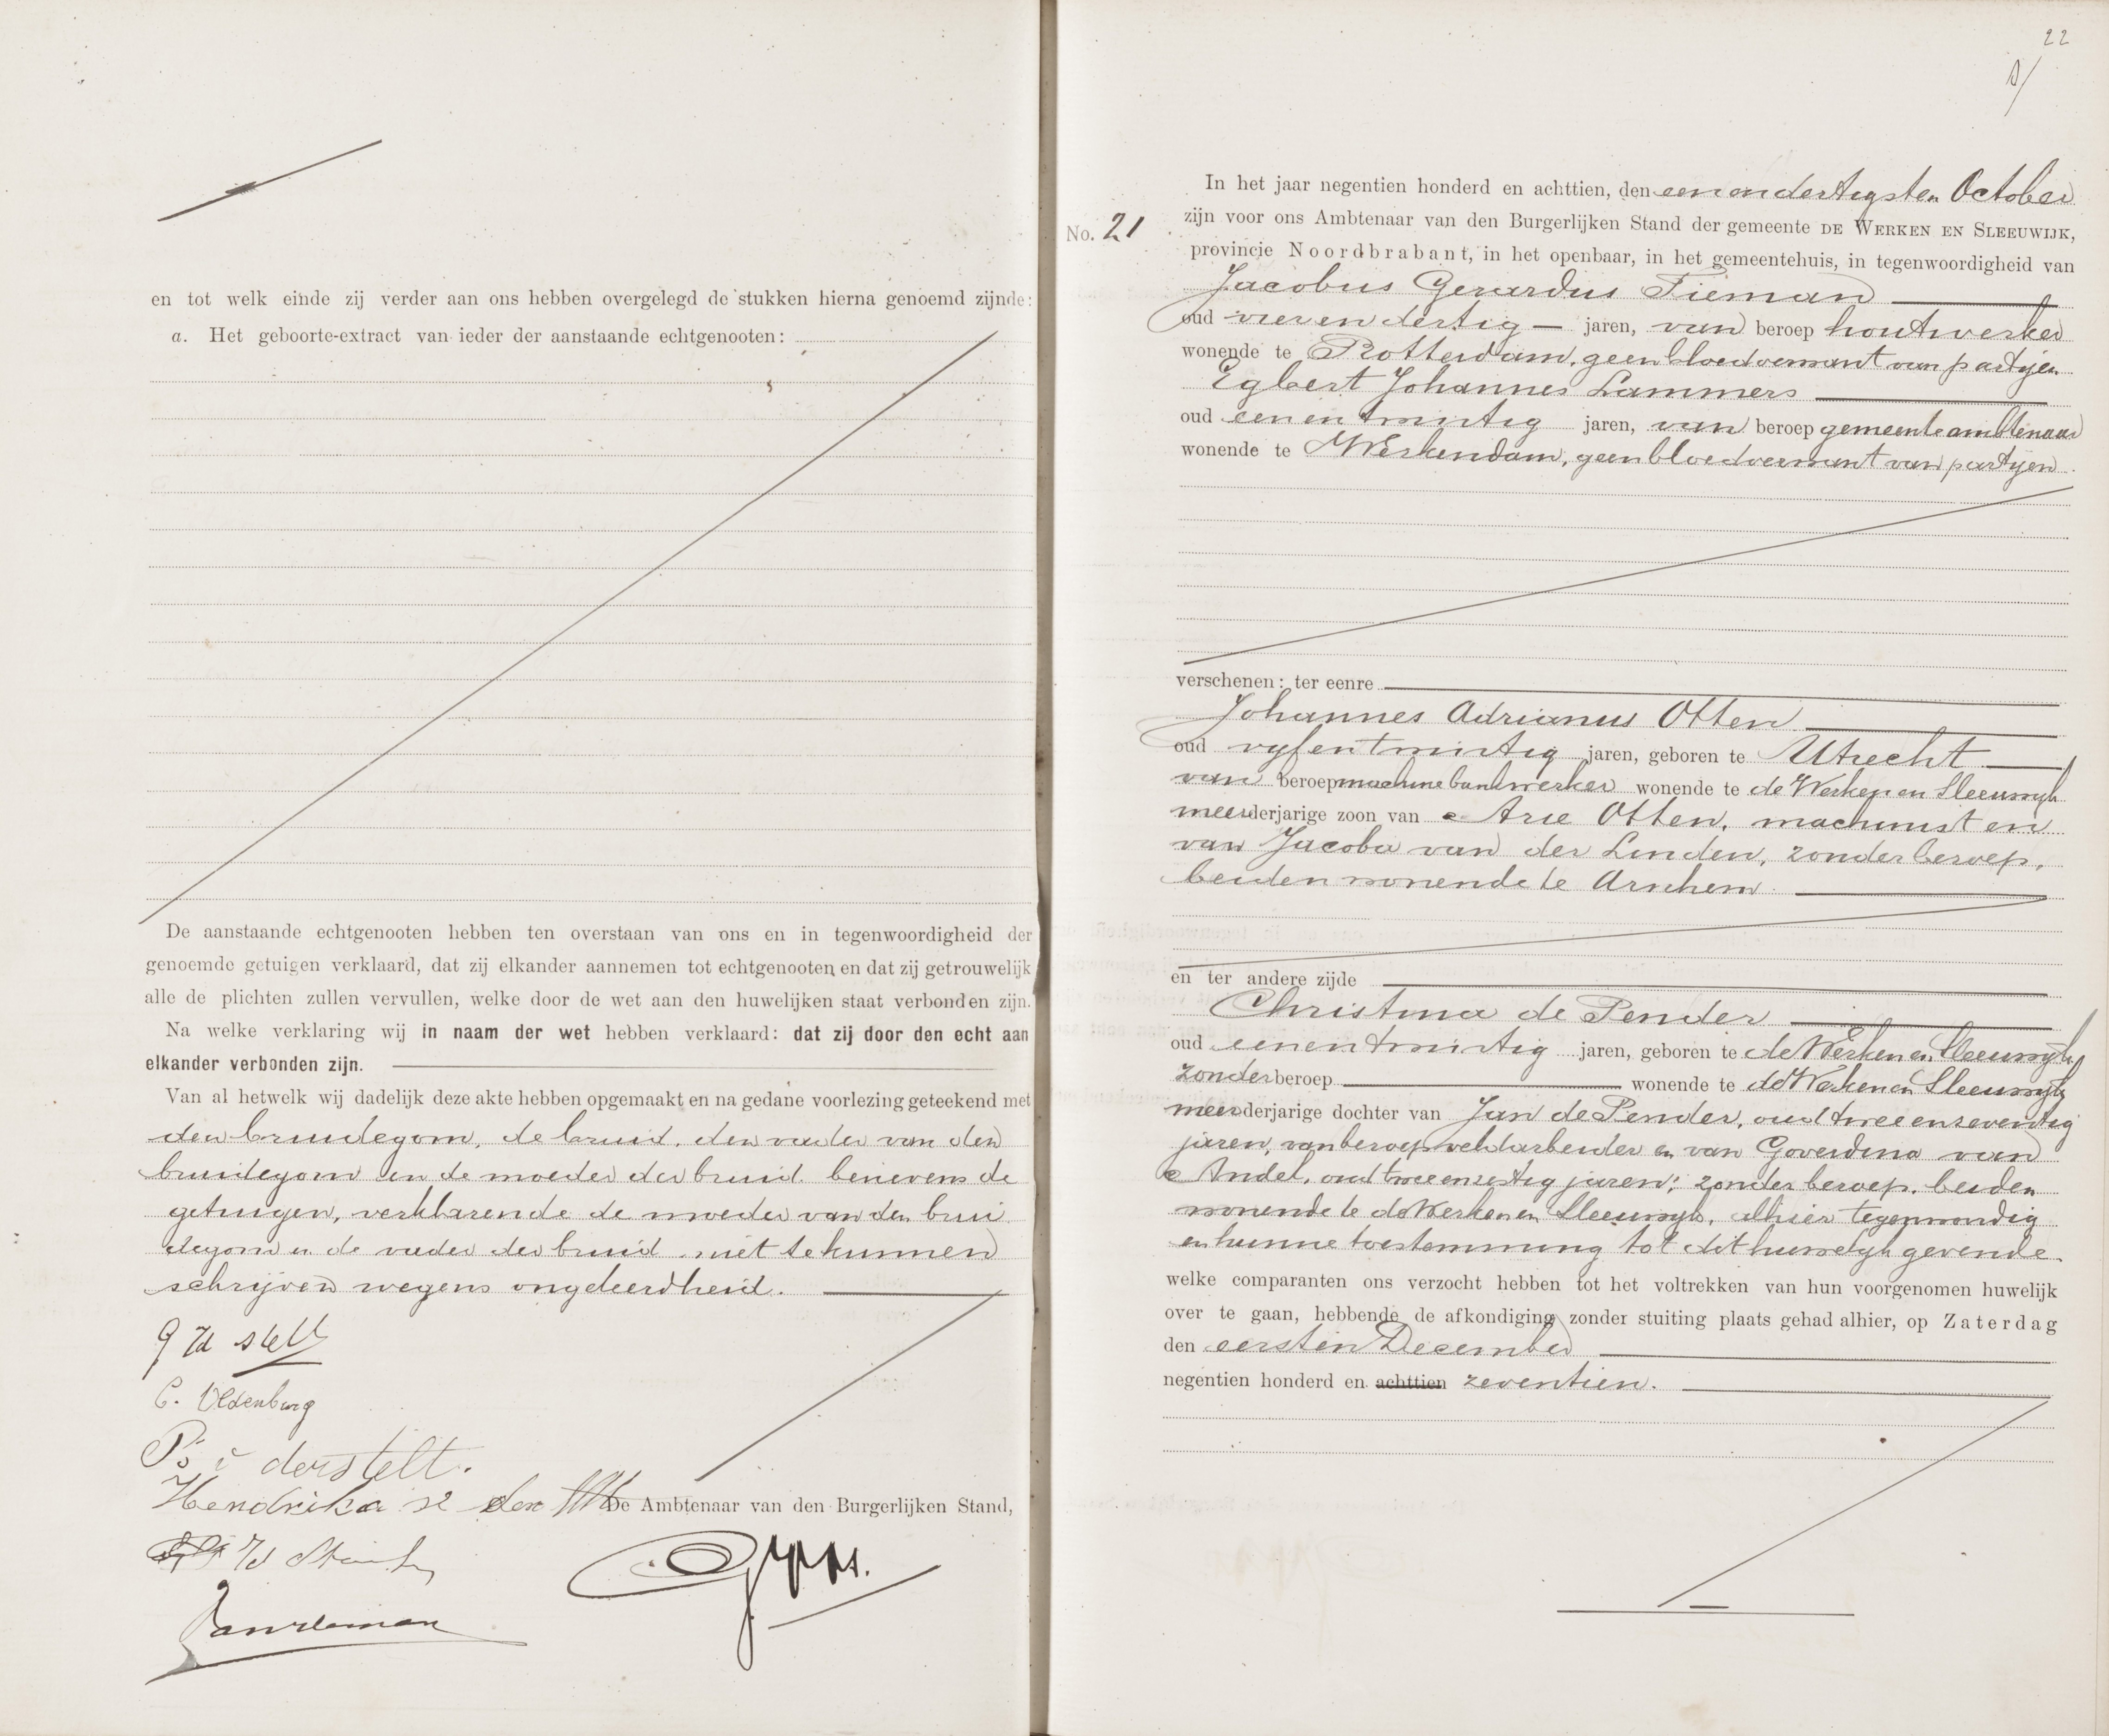 en tot welk einde zij verder aan ons hebben overgelegd de stukken hierna genoemd zijnde:
a. Het geboorte-extract van ieder der aanstaande echtgenooten:
De aanstaande echtgenooten hebben ten overstaan van ons en in tegenwoordigheid der
genoemde getuigen verklaard, dat zij elkander aannemen tot echtgenooten en dat zij getrouwelijk
alle de plichten zullen vervullen, welke door de wet aan den huwelijken staat verbonden zijn.
Na welke verklaring wij in naam der wet hebben verklaard: dat zij door den echt aan
elkander verbonden zijn.
Van al hetwelk wij dadelijk deze akte hebben opgemaakt en na gedane voorlezing geteekend met
den bruidegom, de bruid, den vader van den
bruidegom en de moeder der bruid benevens de
getuigen, verklarende de moeder van den brui
degom en de vader der bruid niet te kunnen
schrijven wegens ongeleerdheid.
C. Oldenburg
derstelt.
Hendrika
De Ambtenaar van den Burgerlijken Stand,
22
No. 21
In het jaar negentien honderd en achttien, den eenendertigsten October
zijn voor ons Ambtenaar van den Burgerlijken Stand der gemeente DE WERKEN EN SLEEUWIJK,
provincie Noordbrabant, in het openbaar, in het gemeentehuis, in tegenwoordigheid van
Jacobus Gerardus Tieman
oud vierendertig — jaren, van beroep houtwerker
wonende te Rotterdam, geen bloedverwant van partijen
Egbert Johannes Lammers
oud eenentwintig jaren, van beroep gemeenteambtenaar
wonende te Werkendam, geen bloedverwant van partijen
verschenen: ter eenre
Johannes Adrianus Otten
oud vijfentwintig jaren, geboren te Utrecht
van beroep machinebankwerker wonende te de Werken en Sleeuwijk
meerderjarige zoon van Arie Otten, machinist en
van Jacoba van der Linden, zonder beroep,
beiden wonende te Arnhem
en ter andere zijde
Christina de Pender
oud eenentwintig jaren, geboren te de Werken en Sleeuwijk
zonder beroep wonende te de Werken en Sleeuwijk
meerderjarige dochter van Jan de Pender, oud tweeenzeventig
jaren, van beroep veldarbeider en van Goverdina van
Andel, oud tweeenzestig jaren, zonder beroep, beiden
wonende te de Werken en Sleeuwijk, alhier tegenwoordig
en hunne toestemming tot dit huwelijk gevende
welke comparanten ons verzocht hebben tot het voltrekken van hun voorgenomen huwelijk
over te gaan, hebbende de afkondiging zonder stuiting plaats gehad alhier, op Zaterdag
den eersten December
negentien honderd en achttien zeventien.